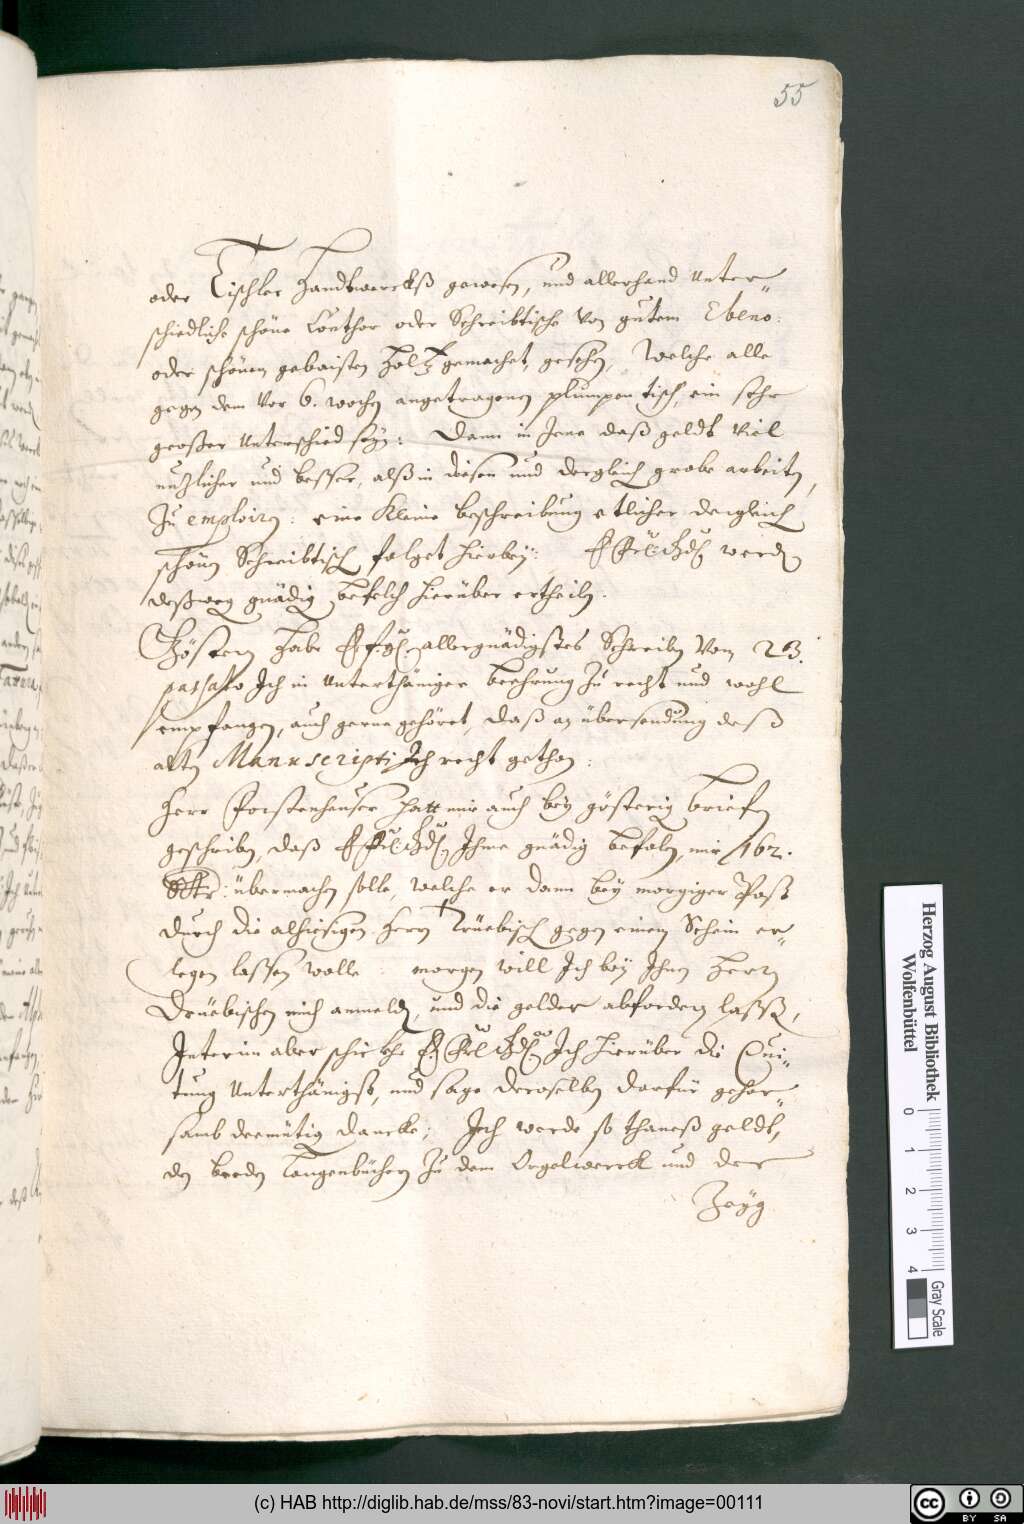 55
oder Tischler Handtwercks gewesen, und allerhand Unter-
schiedliche schöne Conthor oder Schreibtische von gutem Ebeno:
oder schönen gebaisten Holtz gemachet, gesehen, welche alle
gegen dem vor 6. wochen angetragenen plumpen tisch, ein sehr
großer Unterschied seyn: Dann in Jene daß geldt viel
nutzlicher und besser, alß in diesen und dergleich grobe arbeiten,
zu emploiren: eine kleine beschreibung etlicher dergleich
schöne Schreibtisch folget hierbey: werden
deßweg gnädig befelch hierüber ertheiln.
Gestern habe allergnädigstes Schreiben vom 23.
passato Ich in Unterthäniger verehrung zu recht und wohl
empfangen, auch gerne gehöret, daß an übersendung deß
alten Manuscripti Ich recht gethan:
Herr Forstenheuser hatt mir auch bey gösterig brieff
geschriben, daß Ihme gnädig befoln, mir 162.
übermachen solle, welche er dann bey morgiger Post
durch die alhiesigen Herrn Trüebisch gegen einem Schein er-
legen lassen wolle: morgen will Ich bey Ihnen Herrn
Drüebischen mich anmelden, und die gelder abfordern lassen,
Interim aber schicke Ich hierüber die Qui-
tung Unterthänigst, und sage deroselben darfür gehor-
samb demütig dancke; Ich werde so thaneß geldt,
den beeden Langenbüchern zu dem Orgelwerck und der
Zeyg
Herzog August Bibliothek
Wolfenbüttel
0 1 2 3 4
Gray Scale
(c) HAB http://diglib.hab.de/mss/83-novi/start.htm?image=00111
cc BY SA